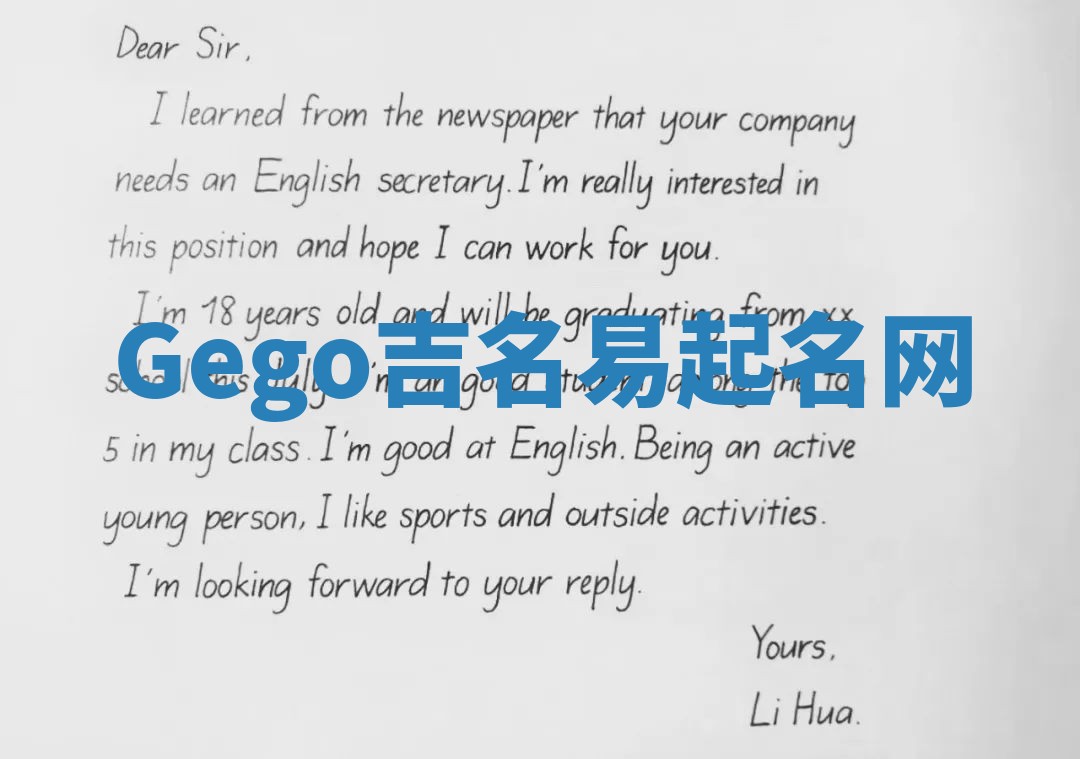 Dear Sir,
I learned from the newspaper that your company
needs an English secretary. I'm really interested in
this position and hope I can work for you.
I'm 18 years old and will be graduating from xx
Gego吉名易起名网
school this July. I'm an good student among the top
5 in my class. I'm good at English. Being an active
young person, I like sports and outside activities.
I'm looking forward to your reply.
Yours,
Li Hua.